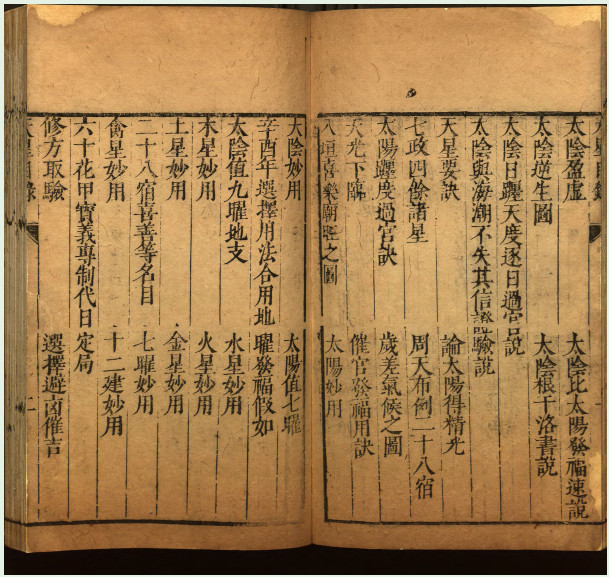 天星目錄
太陰盈虛　太陰比太陽發福速說
太陰逆生圖　太陰根于洛書說
太陰日躔天度逐日過宮說
太陰與海潮不失其信證驗說
天星要訣　論太陽得精光
七政四餘諸星　周天布劊二十八宿
太陽躔度過宮訣　歲差氣候之圖
天光下臨　催官發福用訣
八垣喜樂廟旺之圖　太陽妙用
太陰妙用　太陽值七曜
辛酉年選擇用法合用地曜發福假如
太陰值九曜地支　水星妙用
木星妙用　火星妙用
土星妙用　金星妙用
二十八宿喜善等名目　七曜妙用
禽星妙用　十二建妙用
六十花甲寶義專制代日定局
修方取驗　選擇避凶催吉
天星目錄　二